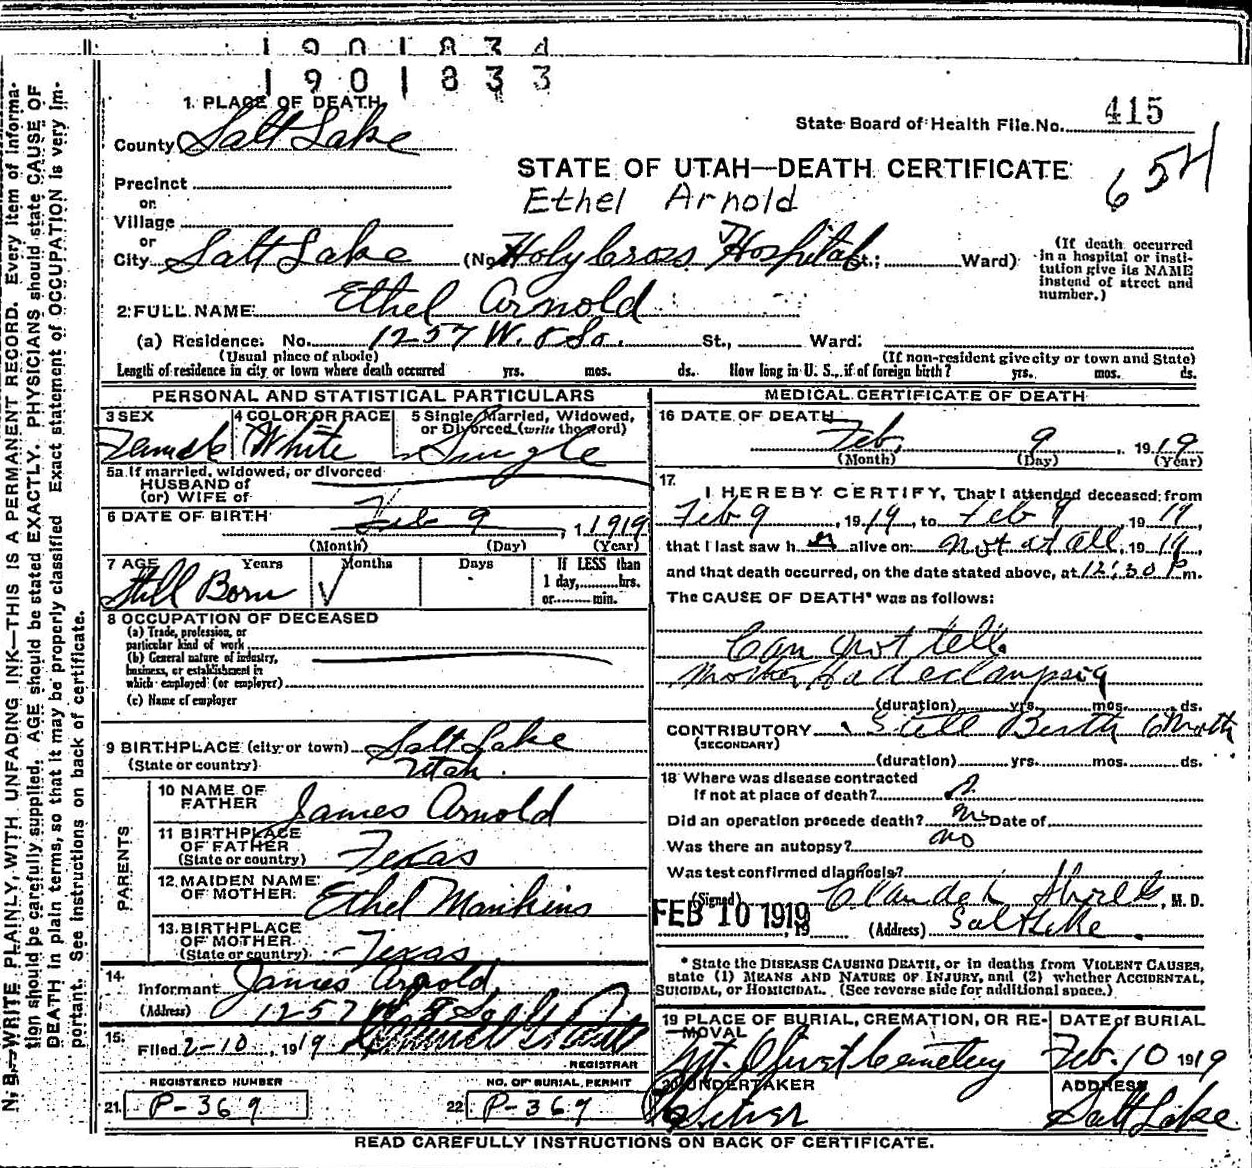 1901834
1901833
415
State Board of Health File No.
654
1 PLACE OF DEATH
County Salt Lake
STATE OF UTAH—DEATH CERTIFICATE
Ethel Arnold
Precinct
or
Village
or
City Salt Lake (No. Holy Cross Hospital St.; Ward)
(If death occurred in a hospital or insti-
tution give its NAME
instead of street and
number.)
2 FULL NAME Ethel Arnold
(a) Residence. No. 1257 W. 8 So. St., Ward:
(Usual place of abode) (If non-resident give city or town and State)
Length of residence in city or town where death occurred yrs. mos. ds. How long in U. S., if of foreign birth? yrs. mos. ds.
PERSONAL AND STATISTICAL PARTICULARS
3 SEX 4 COLOR OR RACE 5 Single, Married, Widowed,
or Divorced (write the word)
Female White Single
5a If married, widowed, or divorced
HUSBAND of
(or) WIFE of
6 DATE OF BIRTH Feb 9 1919
(Month) (Day) (Year)
7 AGE Years Months Days If LESS than
1 day, hrs.
or min.
Still Born
8 OCCUPATION OF DECEASED
(a) Trade, profession, or
particular kind of work
(b) General nature of industry,
business, or establishment in
which employed (or employer)
(c) Name of employer
9 BIRTHPLACE (city or town) Salt Lake
(State or country) Utah
PARENTS
10 NAME OF
FATHER James Arnold
11 BIRTHPLACE
OF FATHER
(State or country) Texas
12 MAIDEN NAME
OF MOTHER Ethel Mankins
13 BIRTHPLACE
OF MOTHER
(State or country) Texas
14
Informant James Arnold
(Address) 1257 W 8 So
15 Filed 2-10, 1919
REGISTRAR
REGISTERED NUMBER NO. OF BURIAL PERMIT
21 P-369 22 P-369
MEDICAL CERTIFICATE OF DEATH
16 DATE OF DEATH
Feb, 9, 1919
(Month) (Day) (Year)
17
I HEREBY CERTIFY, That I attended deceased from
Feb 9, 1919, to Feb 9, 1919,
that I last saw h er alive on not at all, 1919,
and that death occurred, on the date stated above, at 12:30 P m.
The CAUSE OF DEATH* was as follows:
Can not tell.
Mother had eclampsia
(duration) yrs. mos. ds.
CONTRIBUTORY Still Birth 6 Month
(SECONDARY)
(duration) yrs. mos. ds.
18 Where was disease contracted
If not at place of death?
Did an operation precede death? no Date of
Was there an autopsy? no
Was test confirmed diagnosis?
(Signed) M. D.
FEB 10 1919, 19 (Address) Salt Lake
* State the DISEASE CAUSING DEATH, or in deaths from VIOLENT CAUSES,
state (1) MEANS AND NATURE OF INJURY, and (2) whether ACCIDENTAL,
SUICIDAL, or HOMICIDAL. (See reverse side for additional space.)
19 PLACE OF BURIAL, CREMATION, OR RE-
MOVAL DATE of BURIAL
Mt. Olivet Cemetery Feb. 10 1919
20 UNDERTAKER ADDRESS
Salt Lake
READ CAREFULLY INSTRUCTIONS ON BACK OF CERTIFICATE.
N. B.—WRITE PLAINLY, WITH UNFADING INK—THIS IS A PERMANENT RECORD. Every item of informa-
tion should be carefully supplied. AGE should be stated EXACTLY. PHYSICIANS should state CAUSE OF
DEATH in plain terms, so that it may be properly classified. Exact statement of OCCUPATION is very im-
portant. See instructions on back of certificate.